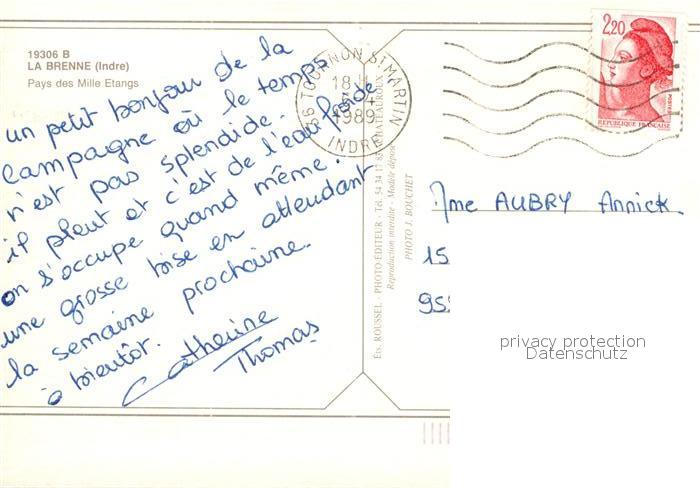 19306 B
LA BRENNE (Indre)
Pays des Mille Etangs
un petit bonjour de la
campagne où le temps
n'est pas splendide.
il pleut et c'est de l'eau froide
on s'occupe quand même.
une grosse bise en attendant
la semaine prochaine.
à bientôt.
Catherine
Thomas
36 TOURNON ST MARTIN
18 H
1989
INDRE
2,20
POSTES
REPUBLIQUE FRANÇAISE
Mme AUBRY Annick.
15
95
Éts. ROUSSEL - PHOTO-ÉDITEUR - Tél. 54 34 17 82 CHATEAUROUX
Reproduction interdite - Modèle déposé
PHOTO J. BOUCHET
privacy protection
Datenschutz